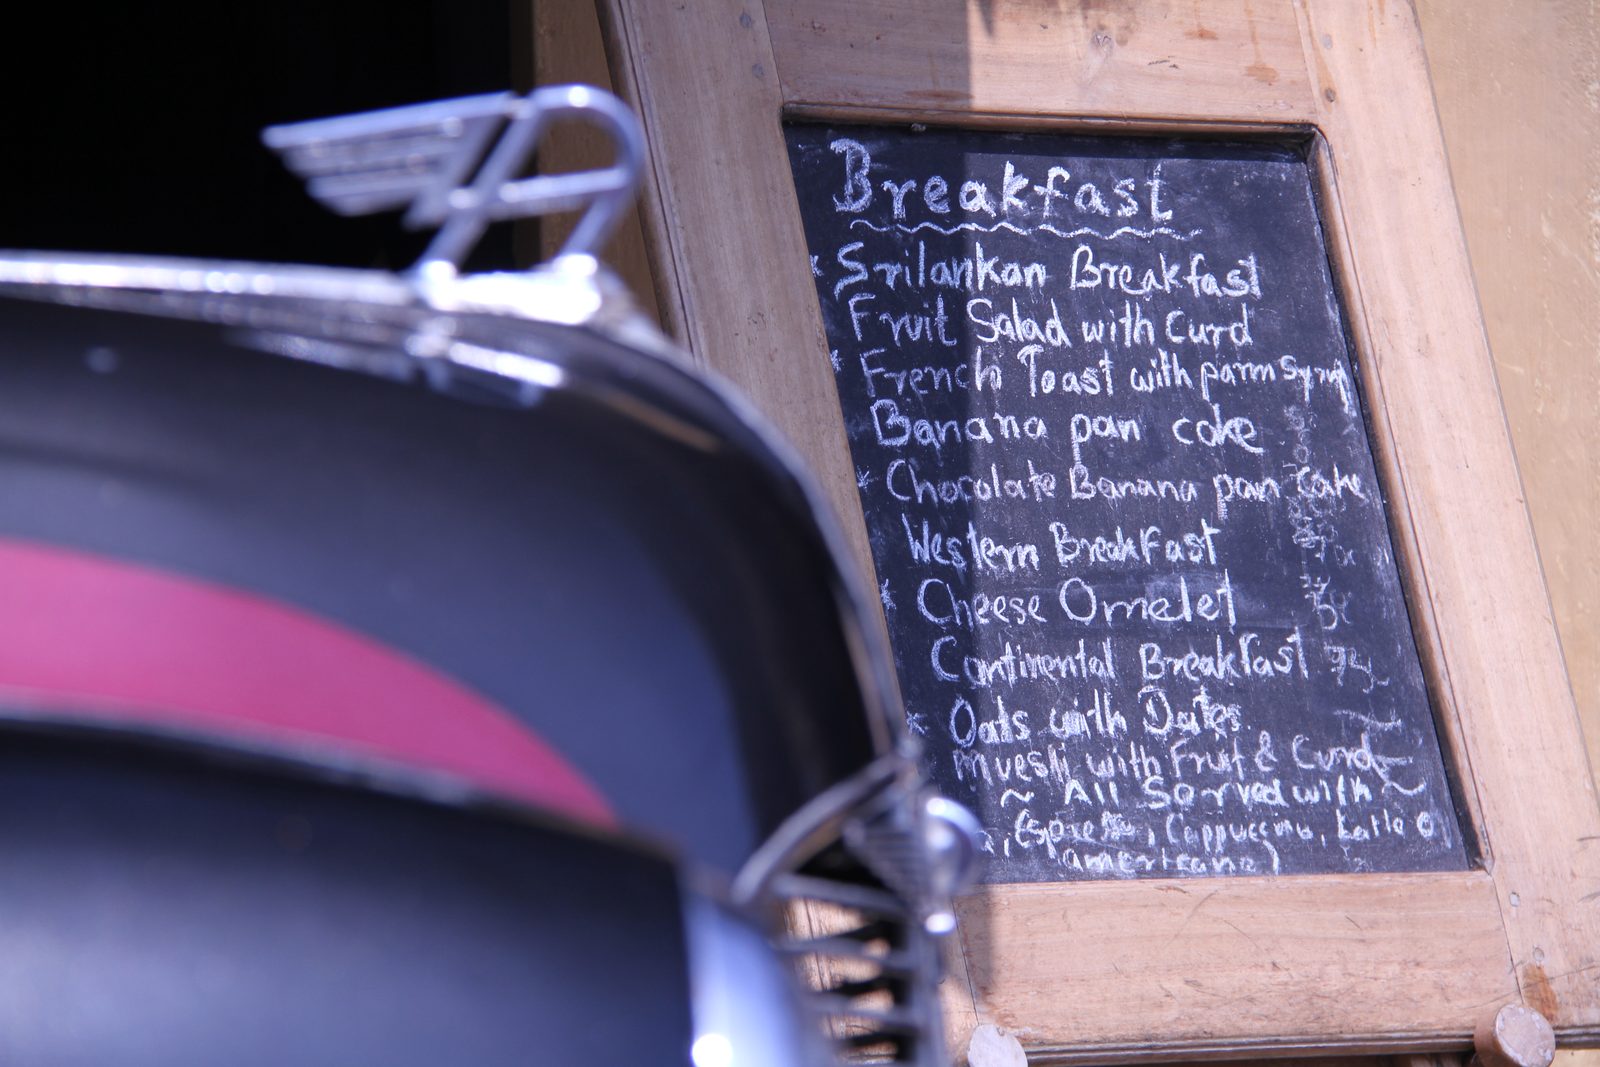 Breakfast
* Srilankan Breakfast
Fruit Salad with Curd
* French Toast with parm Syrup
Banana pan cake
* Chocolate Banana pan cake
Western Breakfast
* Cheese Omelet
Continental Breakfast
* Oats with Dates
Muesli with Fruit & Curd
~ All Served with ~
Espresso, Cappuccino, Latte O
americano)